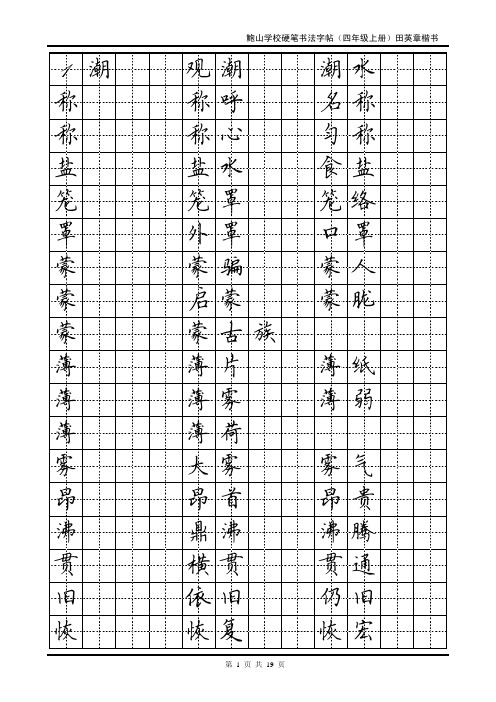 鲍山学校硬笔书法字帖（四年级上册）田英章楷书
1 潮 观潮 潮水
称 称呼 名称
称 称心 匀称
盐 盐水 食盐
笼 笼罩 笼络
罩 外罩 口罩
蒙 蒙骗 蒙人
蒙 启蒙 蒙胧
蒙 蒙古族
薄 薄片 薄纸
薄 薄雾 薄弱
薄 薄荷
雾 大雾 雾气
昂 昂首 昂贵
沸 鼎沸 沸腾
贯 横贯 贯通
旧 依旧 仍旧
恢 恢复 恢宏
第 1 页 共 19 页